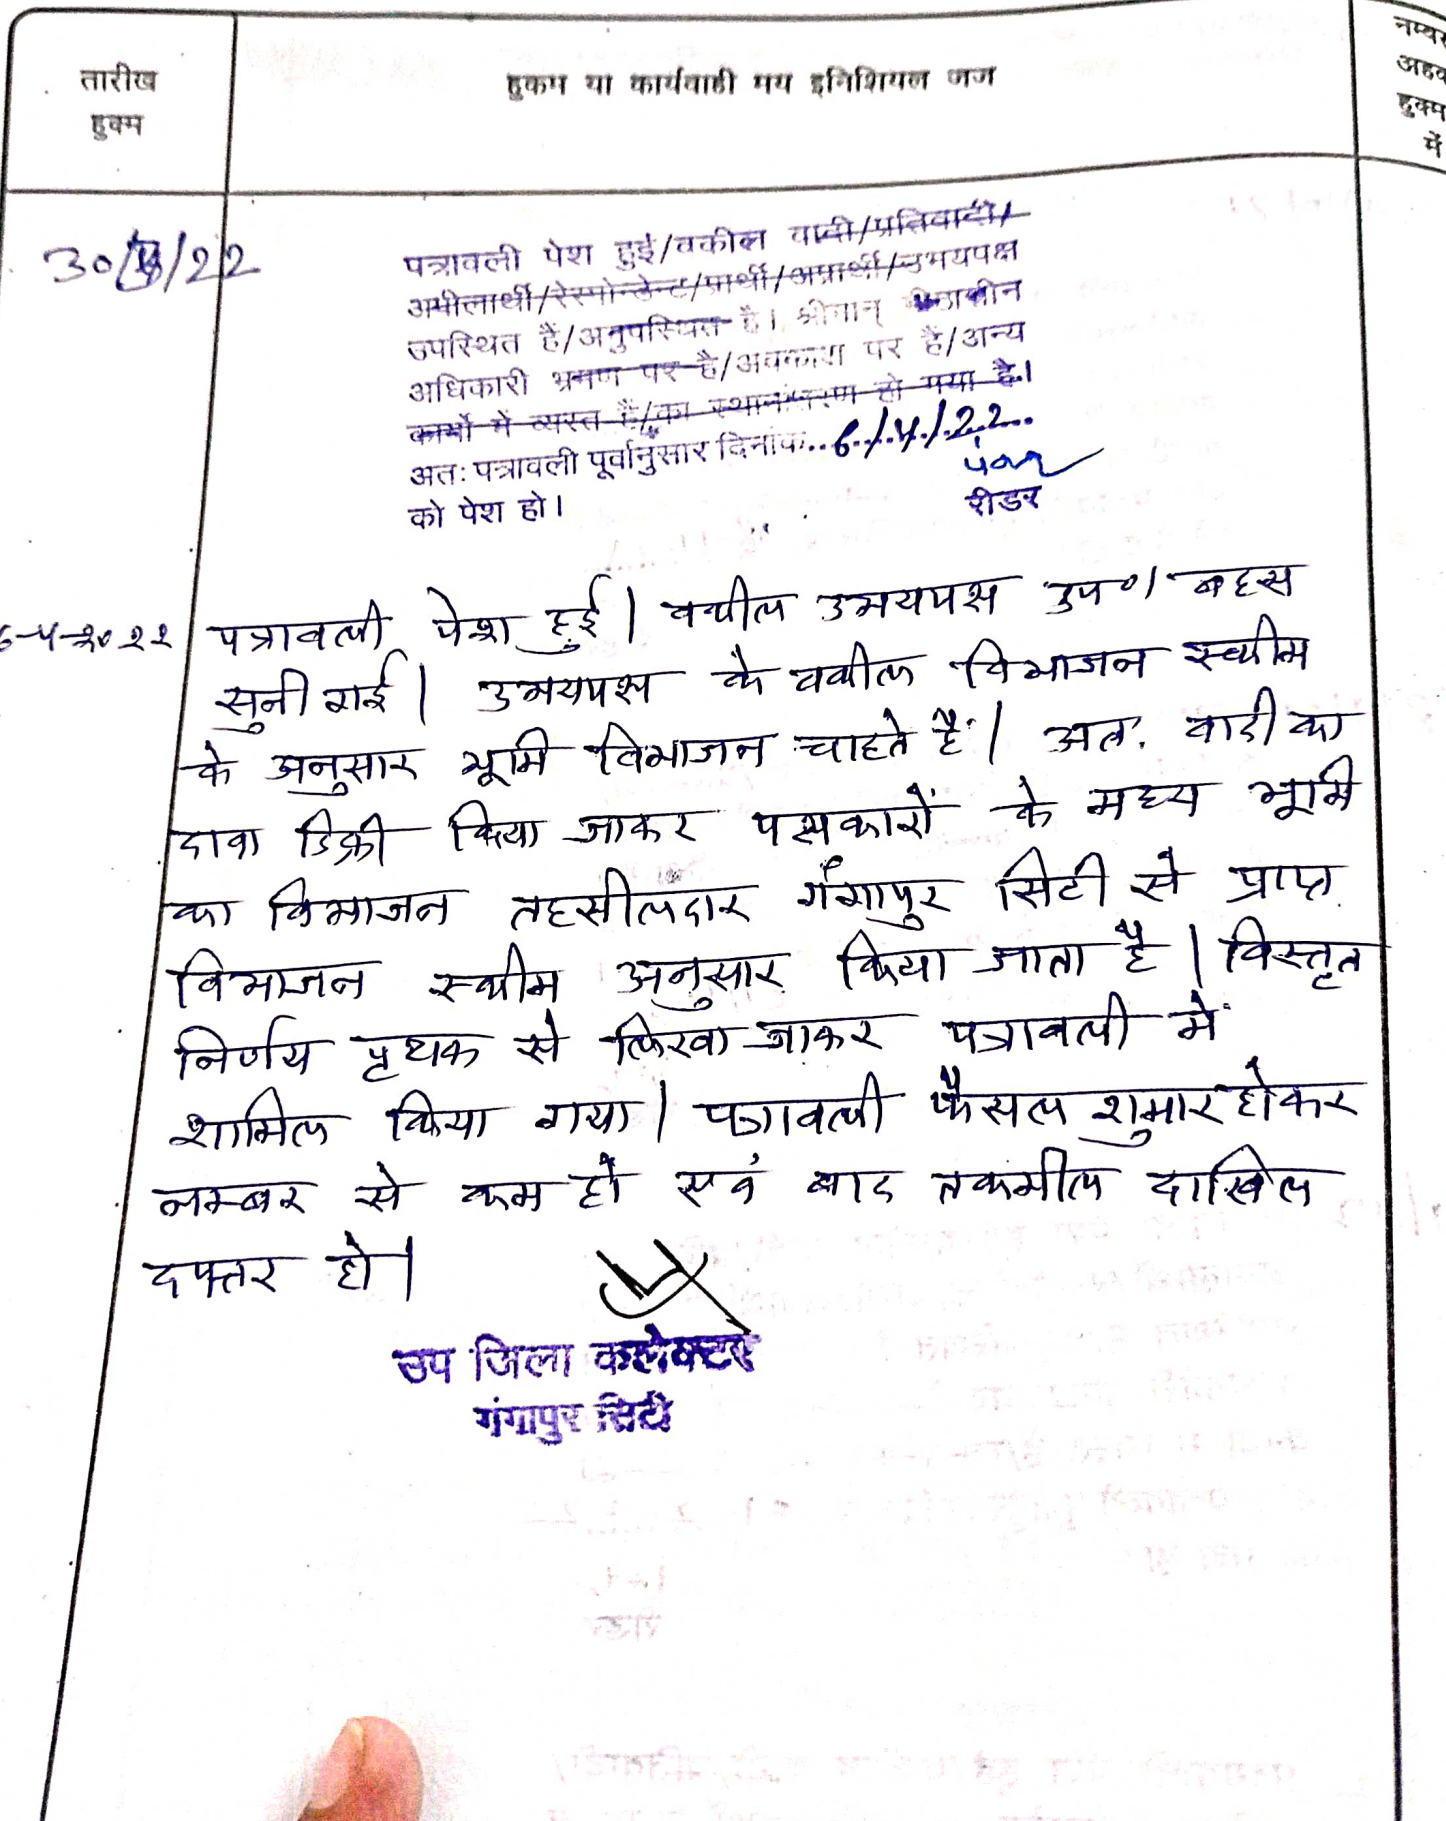 तारीख
हुक्म
हुकम या कार्यवाही मय इनिशियल जज
नम्बर
अहव
हुक्म
में
30/3/22
पत्रावली पेश हुई/वकील वादी/प्रतिवादी/
अपीलार्थी/रेस्पोन्डेन्ट/प्रार्थी/अप्रार्थी/उभयपक्ष
उपस्थित हैं/अनुपस्थित है। श्रीमान् पीठासीन
अधिकारी भ्रमण पर है/अवकाश पर है/अन्य
कार्यो में व्यस्त है/का स्थानान्तरण हो गया है।
अतः पत्रावली पूर्वानुसार दिनांक..6./.4./.22...
को पेश हो।
रीडर
6-4-2022 पत्रावली पेश हुई। वकील उभयपक्ष उप०। बहस
सुनी गई। उभयपक्ष के वकील विभाजन स्कीम
के अनुसार भूमि विभाजन चाहते है। अतः वादी का
दावा डिक्री किया जाकर पक्षकारों के मध्य भूमि
का विभाजन तहसीलदार गंगापुर सिटी से प्राप्त
विभाजन स्कीम अनुसार किया जाता है। विस्तृत
निर्णय पृथक से लिखा जाकर पत्रावली में
शामिल किया गया। पत्रावली फैसल शुमार होकर
नम्बर से कम हो एवं बाद तकमील दाखिल
दफ्तर हो।
उप जिला कलेक्टर
गंगापुर सिटी